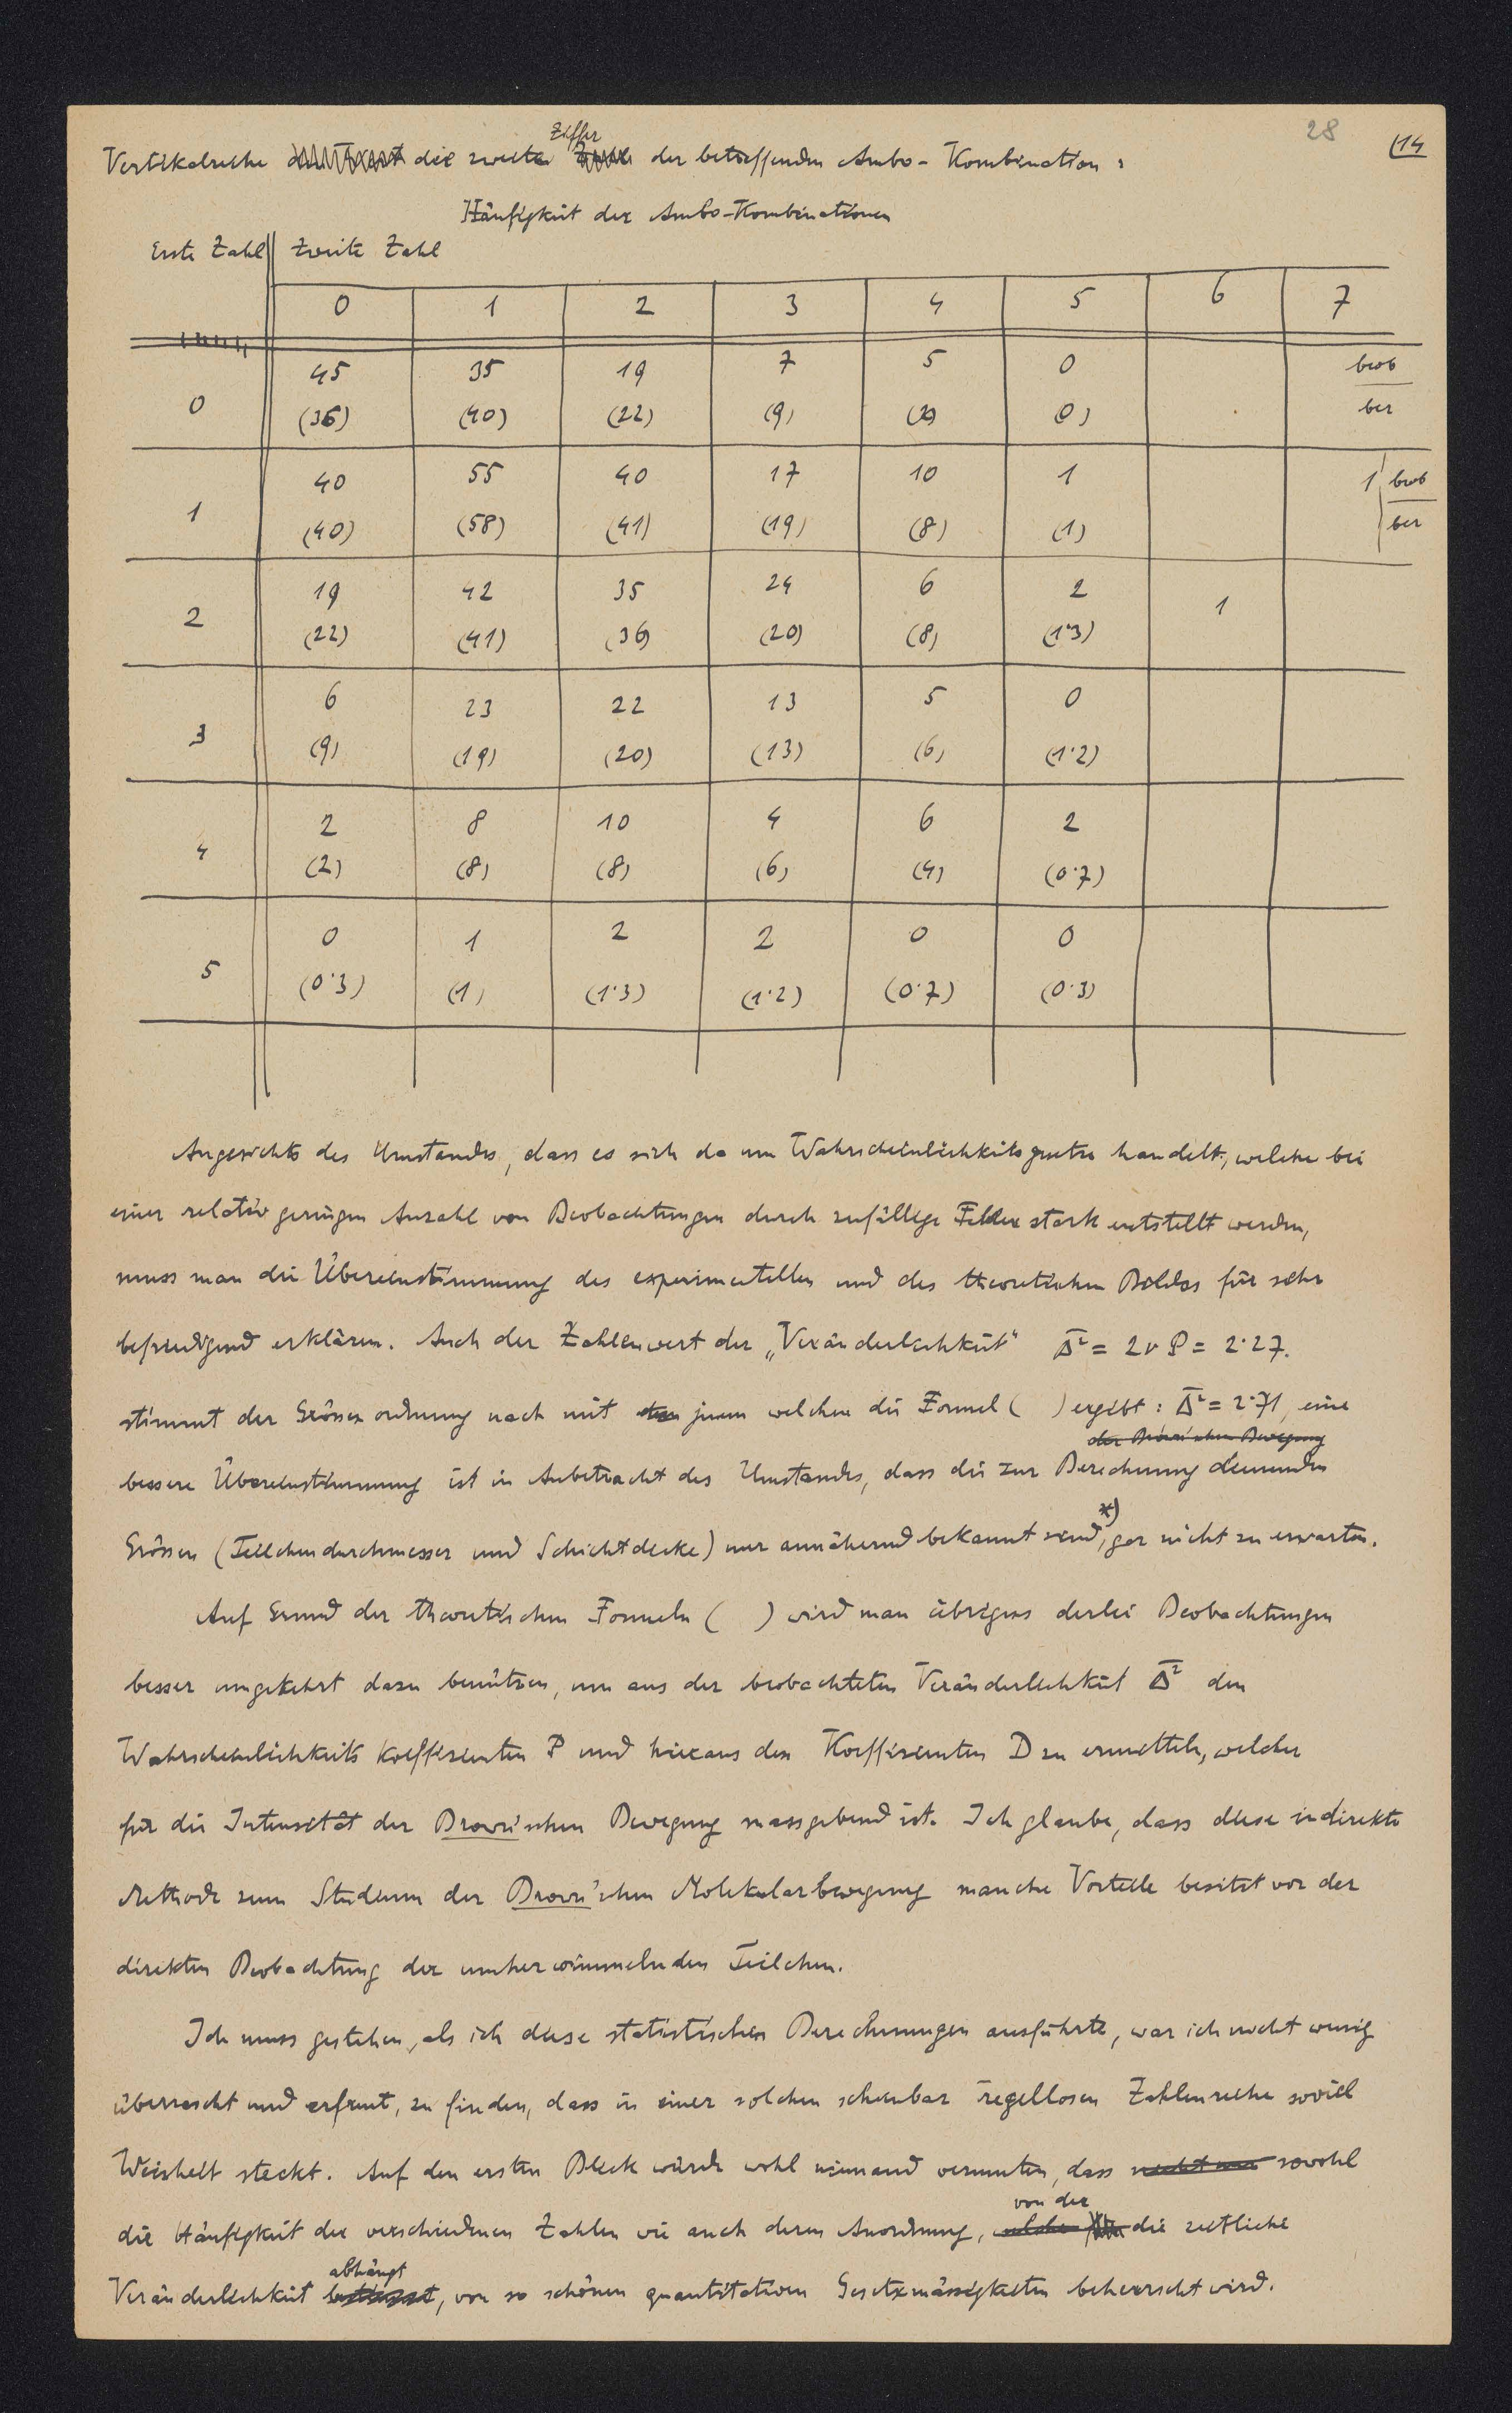 28
(14
Ziffer
Vertikalreihe die zweite der betreffenden Ambo-Kombination :
Häufigkeit der Ambo-Kombinationen
Erste Zahl zweite Zahl
0 1 2 3 4 5 6 7
45 35 19 7 5 0 beob
0 (36) (40) (22) (9) (2) (0) ber
40 55 40 17 10 1 1 beob
1 (40) (58) (41) (19) (8) (1) ber
19 42 35 24 6 2 1
2 (22) (41) (36) (20) (8) (1·3)
6 23 22 13 5 0
3 (9) (19) (20) (13) (6) (1·2)
2 8 10 4 6 2
4 (2) (8) (8) (6) (4) (0·7)
0 1 2 2 0 0
5 (0·3) (1) (1·3) (1·2) (0·7) (0·3)
Angesichts des Umstandes, dass es sich da um Wahrscheinlichkeitsgesetze handelt, welche bei
einer relativ geringen Anzahl von Beobachtungen durch zufällige Fehler stark entstellt werden,
muss man die Übereinstimmung des experimentellen und des theoretischen Bildes für sehr
befriedigend erklären. Auch der Zahlenwert der „Veränderlichkeit" Δ̅² = 2νP = 2·27.
stimmt der Grössenordnung nach mit jenem welchen die Formel ( ) ergibt : Δ̅² = 2·71, eine
der Brown'schen Bewegung
bessere Übereinstimmung ist in Anbetracht des Umstandes, dass die zur Berechnung dienenden
Grössen (Teilchendurchmesser und Schichtdicke) nur annähernd bekannt sind,*) gar nicht zu erwarten.
Auf Grund der theoretischen Formeln ( ) wird man übrigens derlei Beobachtungen
besser umgekehrt dazu benützen, um aus der beobachteten Veränderlichkeit Δ̅² den
Wahrscheinlichkeits koeffizienten P und hieraus den Koeffizienten D zu ermitteln, welcher
für die Intensität der Brown'schen Bewegung massgebend ist. Ich glaube, dass diese indirekte
Methode zum Studium der Brown'schen Molekularbewegung manche Vorteile besitzt vor der
direkten Beobachtung der umherwimmelnden Teilchen.
Ich muss gestehen, als ich diese statistischen Berechnungen ausführte, war ich nicht wenig
überrascht und erfreut, zu finden, dass in einer solchen scheinbar regellosen Zahlenreihe soviel
Weisheit steckt. Auf den ersten Blick würde wohl niemand vermuten, dass nicht nur sowohl
von der
die Häufigkeit der verschiedenen Zahlen wie auch deren Anordnung, welche die zeitliche
abhängt
Veränderlichkeit bestimmt, von so schönen quantitativen Gesetzmässigkeiten beherrscht wird.